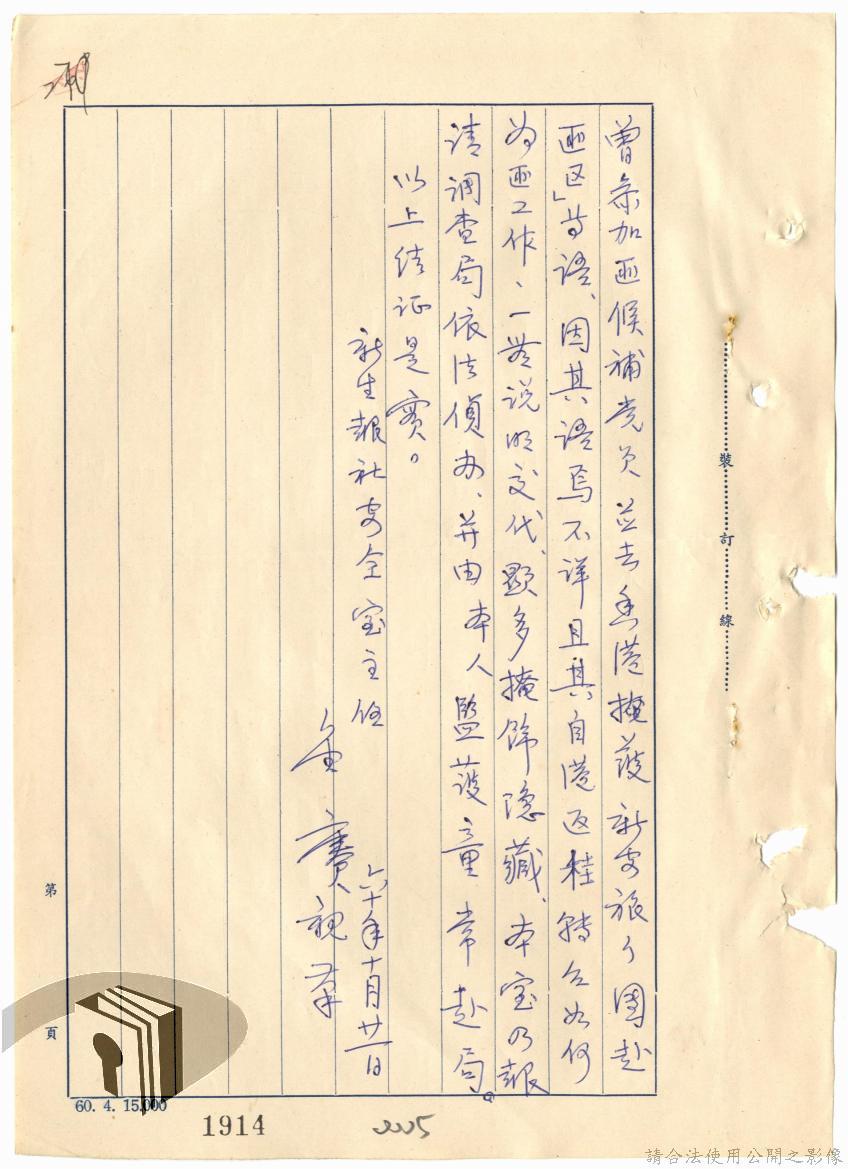 曾參加匪候補党员並去香港掩護新安旅行團赴
匪区」等語、因其語焉不详且其自港返桂轉台如何
为匪工作、一無说明交代、顯多掩飾隐藏、本室乃報
请調查局依法偵办、并由本人監護童常赴局。
以上结证是實。
新生報社安全室主任
親筆
六十年十月廿一日
裝訂線
第
頁
60. 4. 15,000
1914
請合法使用公開之影像